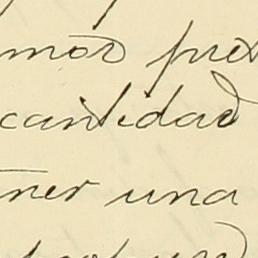 mos pre
cantidad
ner una